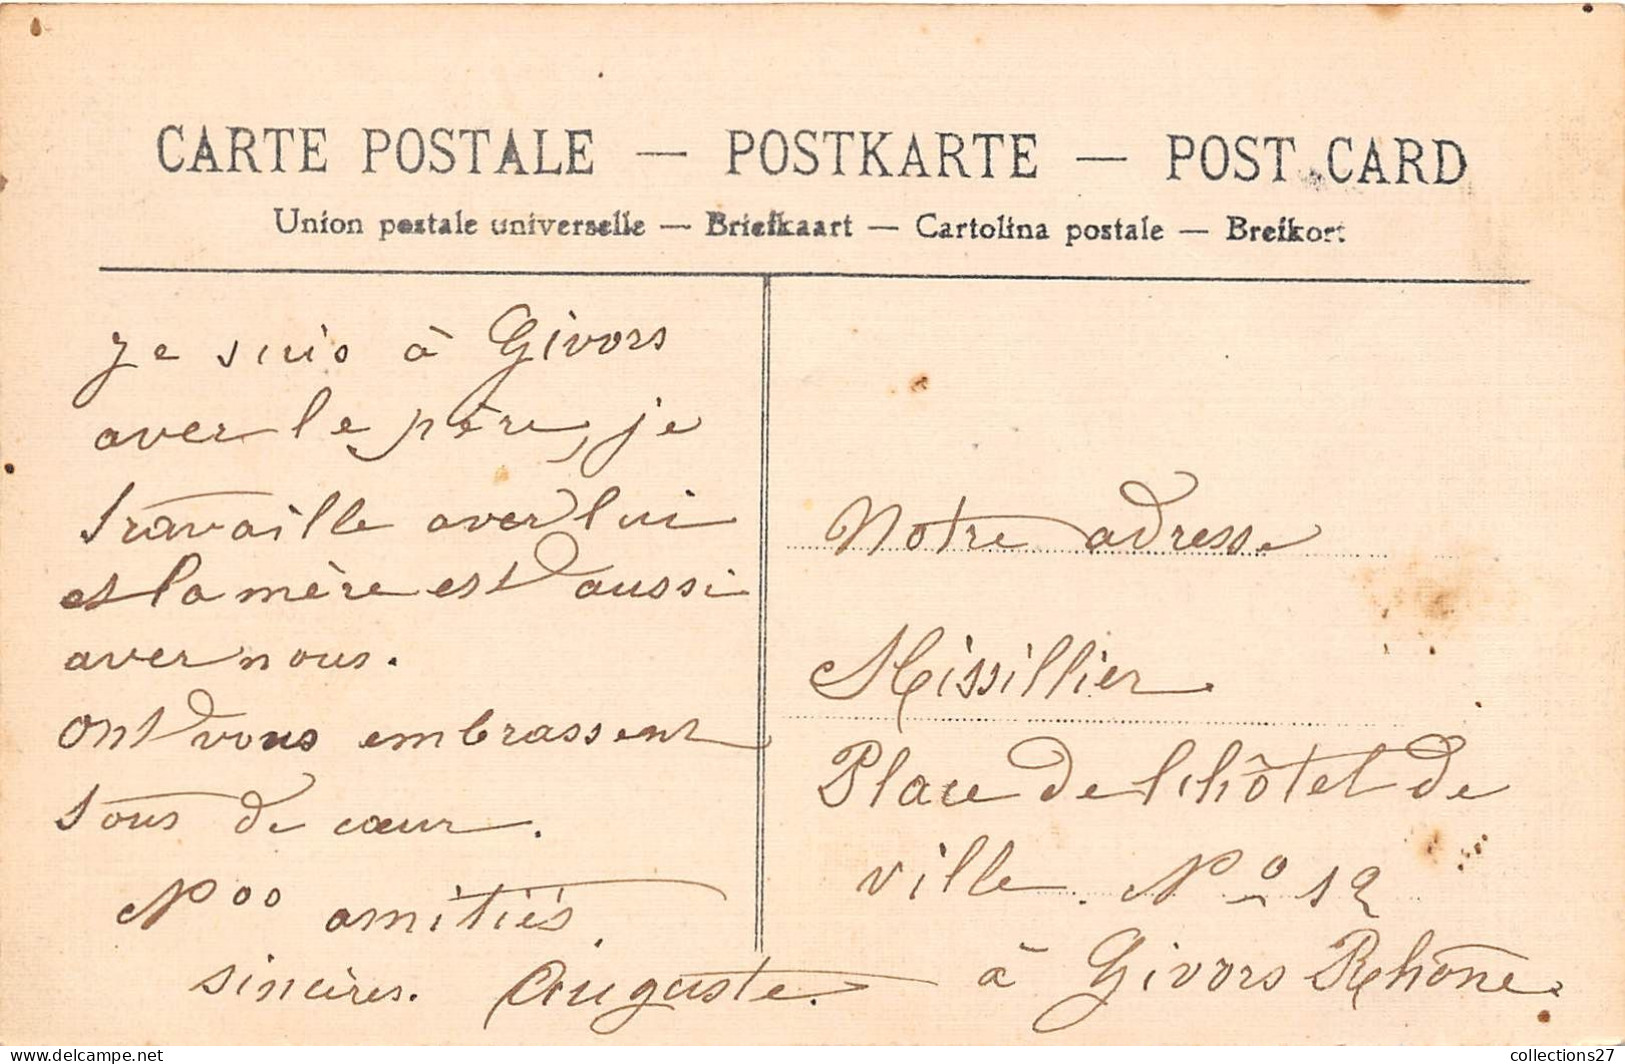 CARTE POSTALE — POSTKARTE — POST CARD
Union postale universelle — Briefkaart — Cartolina postale — Brefkort
Je suis à Givors
avec le père, je
travaille avec lui
et la mère est aussi
avec nous.
ont vous embrassent
tous de cœur.
Noo amitiés
sincères. Auguste.
Notre adresse
Missillier
Place de l'hôtel de
ville No 12
à Givors Rhône.
collections27